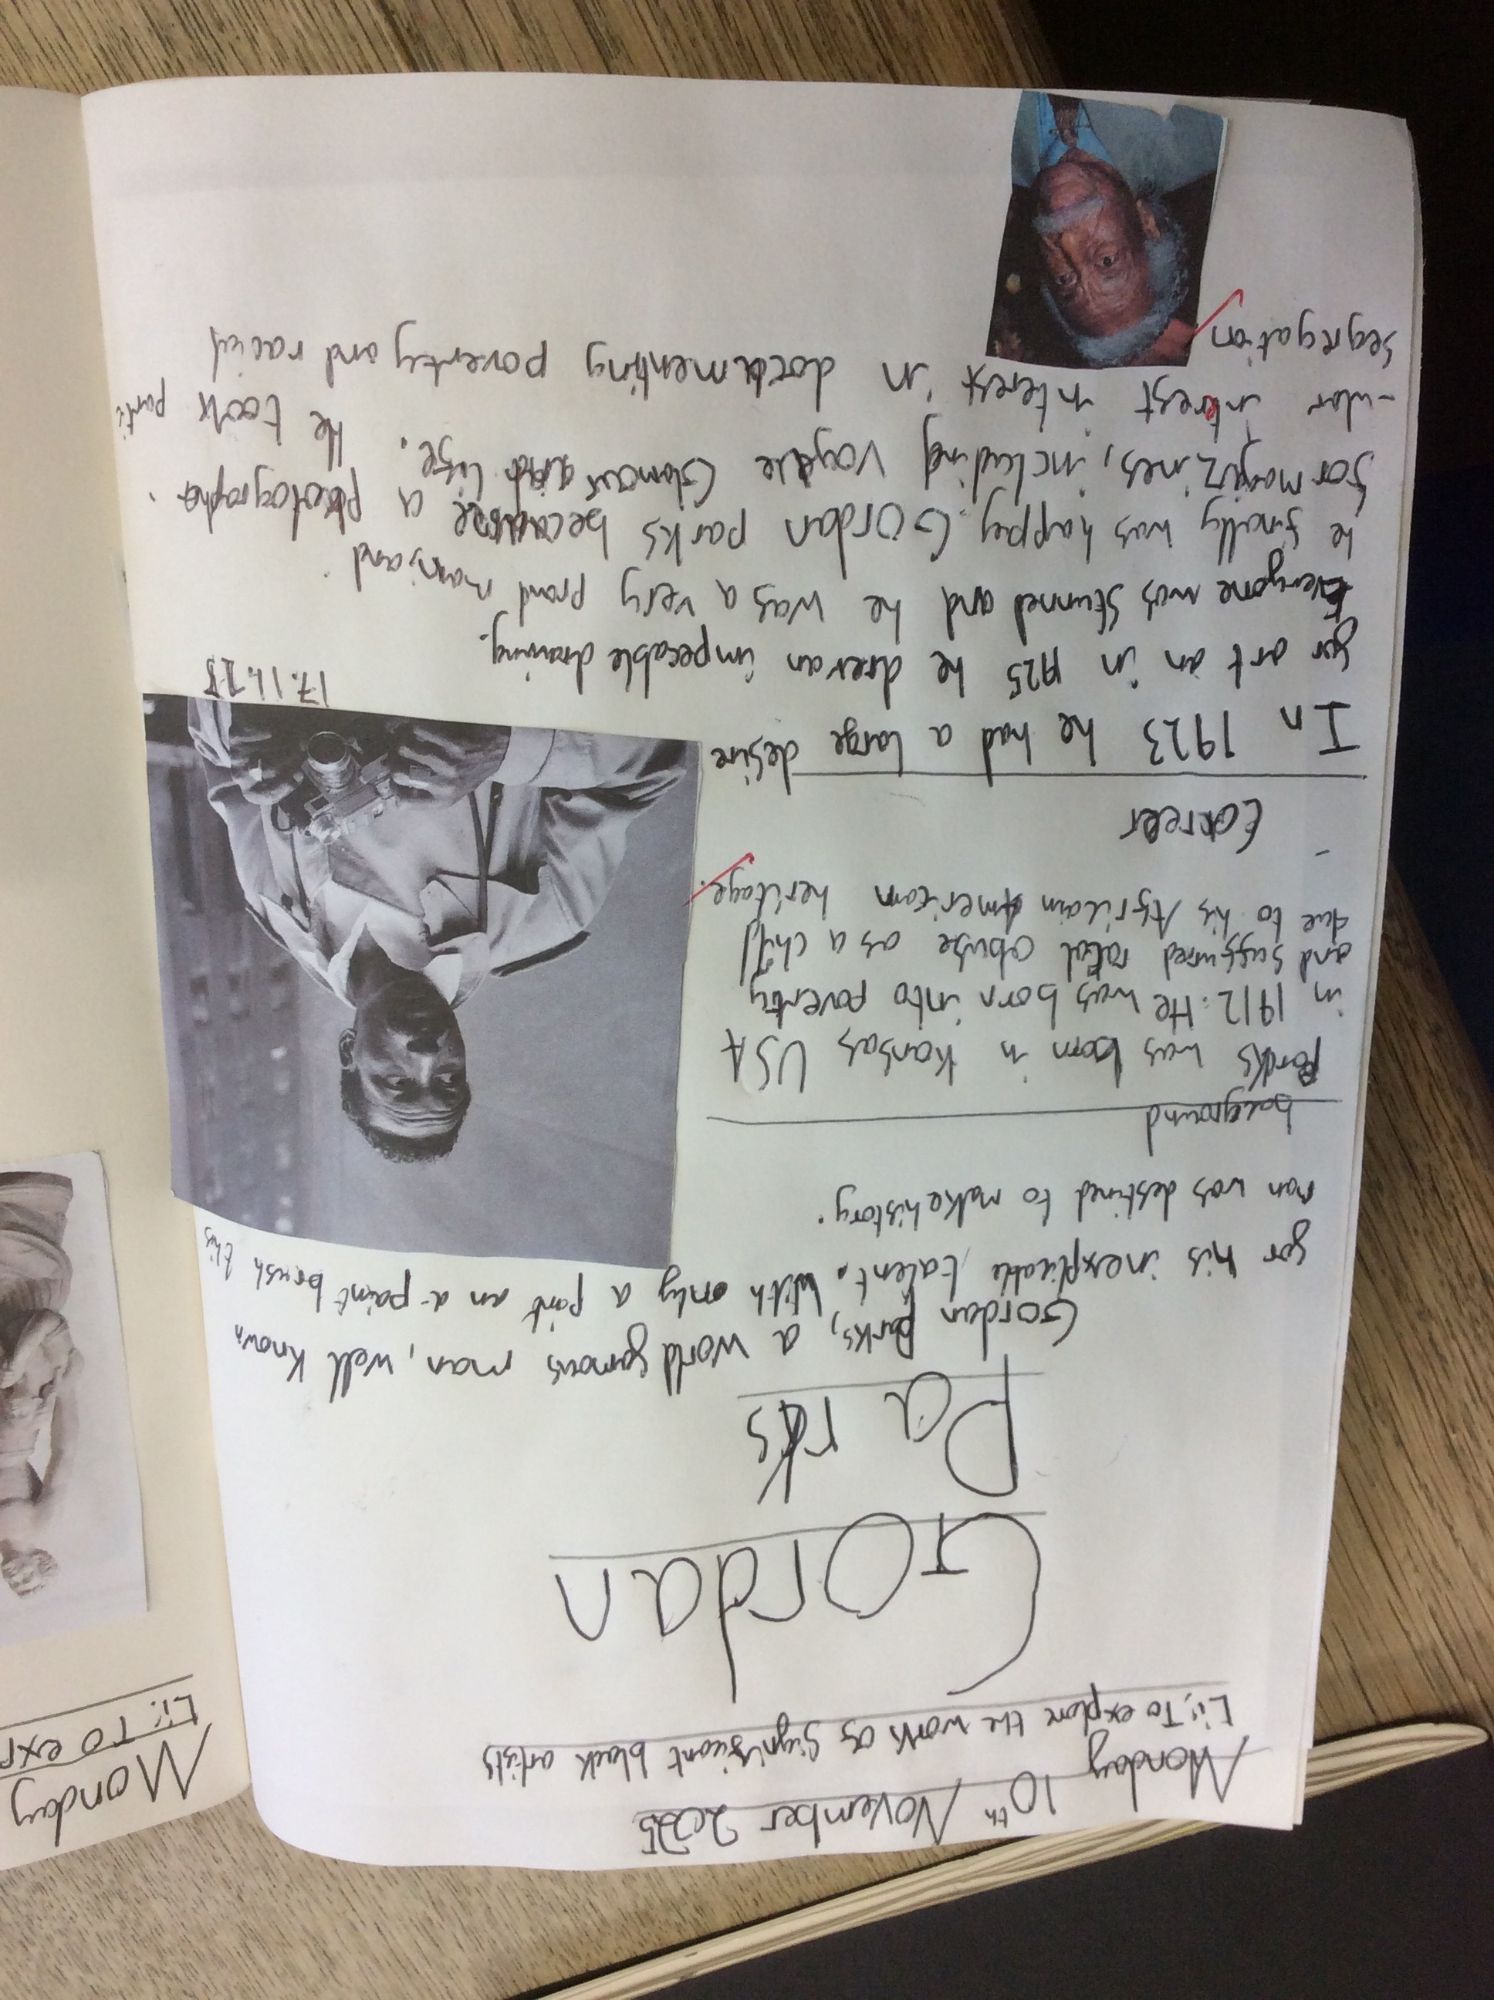 Monday 10th November 2025
Li: To explore the work of Significant black artists
Gordan
Parks
Gordan Parks, a world famous man, well known
for his inexplicable talent. With only a pant an a paint brush this
man was destined to make history.
bacground
Parks was born in Kansas USA
in 1912. He was born into poverty
and suffured racial abuse as a child
due to his Africain American heritage.
Carreer
In 1923 he had a large desire
for art an in 1925 he drew an impecable drawing.
17.11.25
Everyone was stunned and he was a very proud man, and
he finally was happy. Gordan parks became a photographer.
for magizines, including Vogue Glamour and Life. He took parti
-ular intrest interest in documenting poverty and racial
segregation
Monday
Li: TO exp